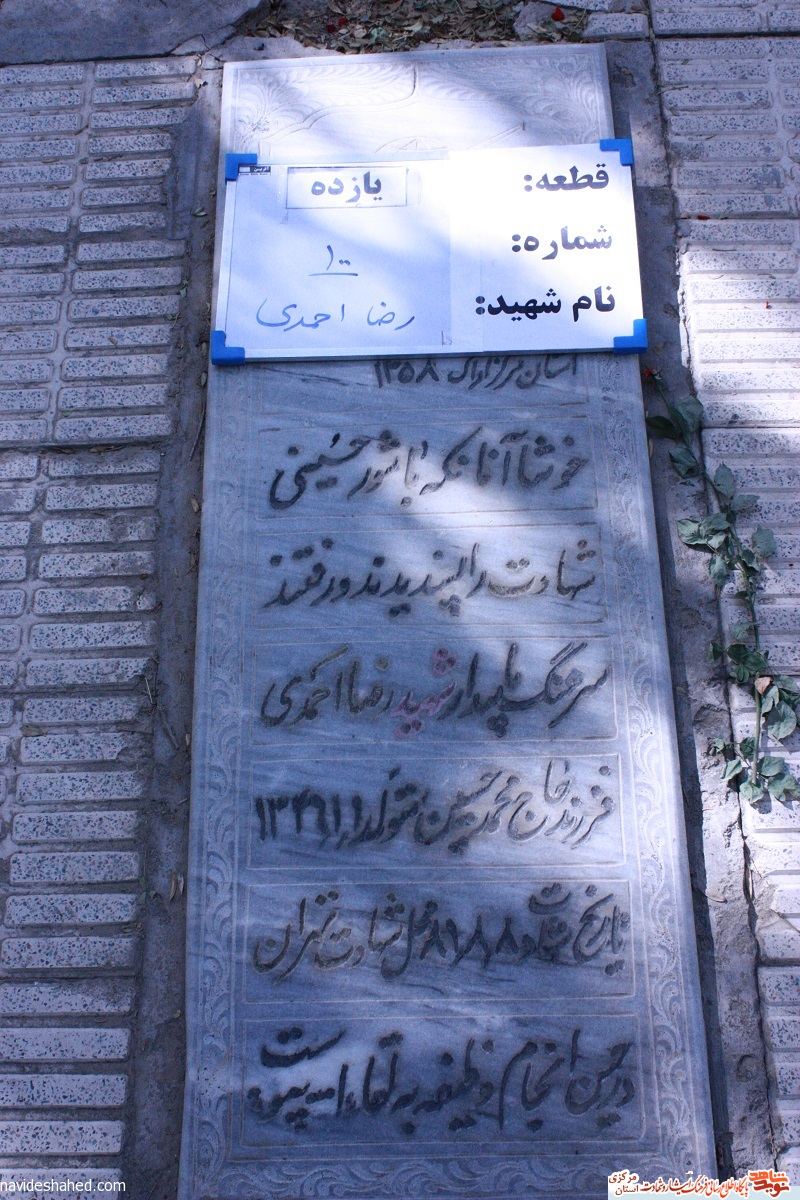 قطعه: یازده
شماره: ۱۰۰
نام شهید: رضا احمدی
استان مرکزی اراک ۱۳۵۸
خوشا آنانکه با شور حسینی
شهادت را پسندیدند و رفتند
سرهنگ پاسدار شهید رضا احمدی
فرزند حاج محمدحسین متولد ۱۳۴۶/۱/۱
تاریخ شهادت ۸۱/۸/۸ محل شهادت تهران
در حین انجام وظیفه به لقاءالله پیوست
navideshahed.com
نوید شاهد
استان مرکزی